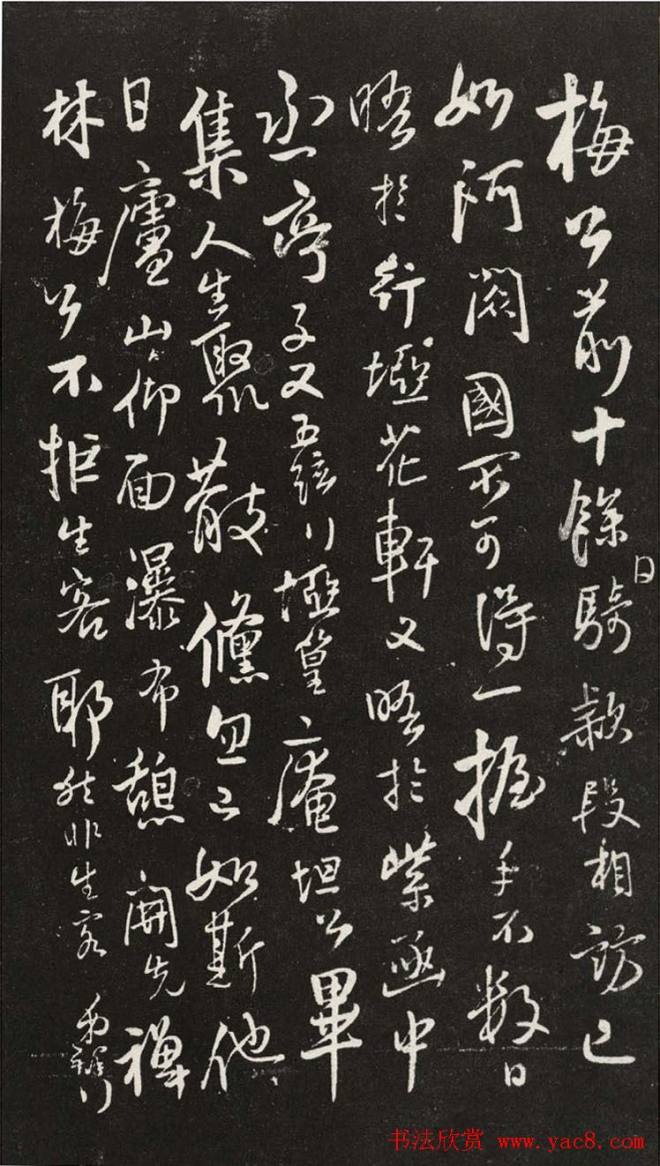 梅公前十餘日騎款段相訪已
如阿閦國不可得一握手不數日
晤於花軒又晤於紫函中
丞亭子又五弦庵坦公畢
集人生聚散儵忽如斯他
日廬山仰面瀑布憩開先禪
林梅公不拒生客耶然非生客 弟鐸
书法欣赏 www.yac8.com